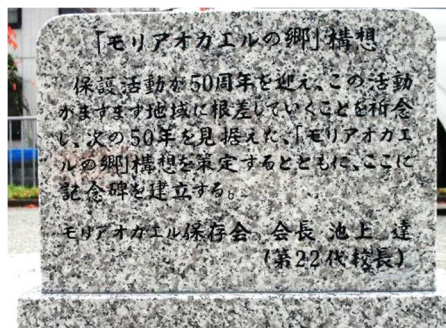 「モリアオガエルの郷」構想
保護活動が50周年を迎え、この活動
がますます地域に根差していくことを祈念
し、次の50年を見据えた、「モリアオガエ
ルの郷」構想を策定するとともに、ここに
記念碑を建立する。
モリアオガエル保存会 会長 池上 達
(第22代校長)